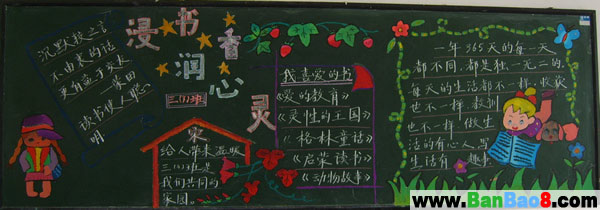 浸书香
润心灵
三(1)班
沉默较之言
不由衷的话
更有益于交
读书使人聪
明
家
给人带来温暖
三(1)班是
我们共同的
家园。
我喜爱的书
《爱的教育》
《灵性的王国》
《格林童话》
《启蒙读书》
《动物故事》
一年365天的每一天
都不同,都是独一无二的,
每天的生活都不一样,收获
也不一样,教训
也不一样,做生
活的有心人,写
生活有
www.BanBao8.com